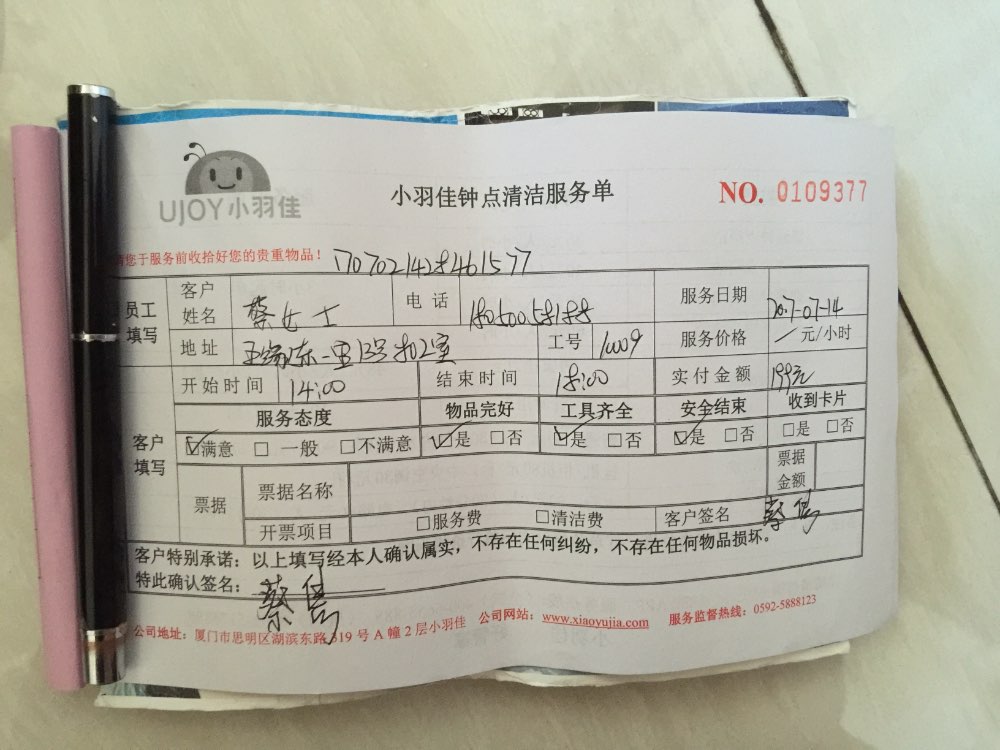 UJOY小羽佳
小羽佳钟点清洁服务单
NO. 0109377
您于服务前收拾好您的贵重物品！
1707021428461577
员工填写
客户姓名 蔡女士 电话 服务日期 2017-07-14
地址 工号 1009 服务价格 / 元/小时
开始时间 14:00 结束时间 18:00 实付金额
客户填写
服务态度 物品完好 工具齐全 安全结束 收到卡片
☑满意 □ 一般 □不满意 ☑是 □否 ☑是 □否 ☑是 □否 □是 □否
票据 票据名称 票据金额
开票项目 □服务费 □清洁费 客户签名 蔡
客户特别承诺：以上填写经本人确认属实，不存在任何纠纷，不存在任何物品损坏。
特此确认签名： 蔡
公司地址：厦门市思明区湖滨东路319号A幢2层小羽佳 公司网站：www.xiaoyujia.com 服务监督热线：0592-5888123